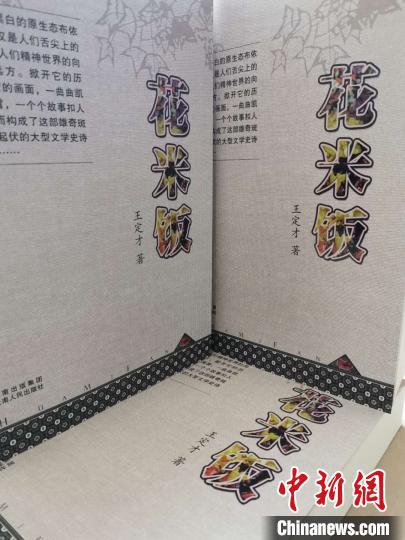 白的原生态布依
是人们舌尖上的
人们精神世界的向
方。掀开它的历
的画面,一曲曲凯
,一个个故事扣人
而构成了这部雄奇斑
起伏的大型文学史诗
……
花米饭
王定才 著
南出版集团
南人民出版社
H DAM FAN
白的原生态布依
是人们舌尖上的
们精神世界的向
方。掀开它的历
的画面,一曲曲凯
一个个故事扣人
构成了这部雄奇斑
伏的大型文学史诗
花米饭
王定才 著
AM FAN
一个个故事扣人
构成了这部雄奇斑
的大型文学史诗
花米饭
王定才 著
中新网
Chinanews.com